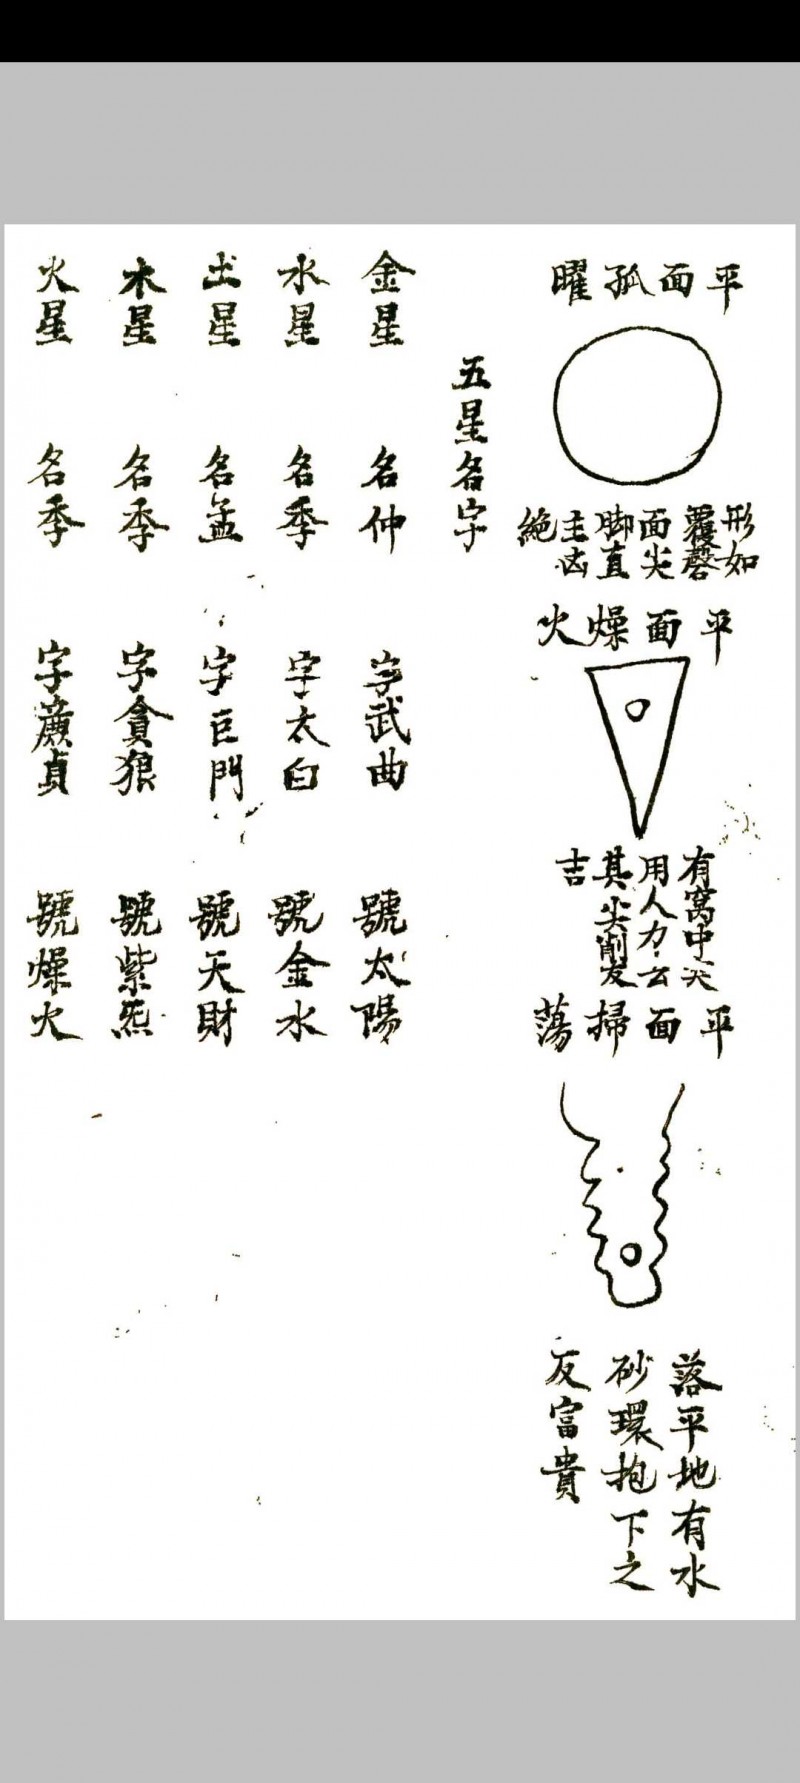 平面孤曜
形如
覆磬
面尖
脚直
主凶
絶
平面燥火
有窝中尖
用人力去
其尖削反
吉
平面掃蕩
落平地有水
砂環抱下之
反富貴
五星名字
金星 名仲 字武曲 號太陽
水星 名季 字太白 號金水
土星 名孟 字巨門 號天財
木星 名季 字貪狼 號紫炁
火星 名季 字廉貞 號燥火